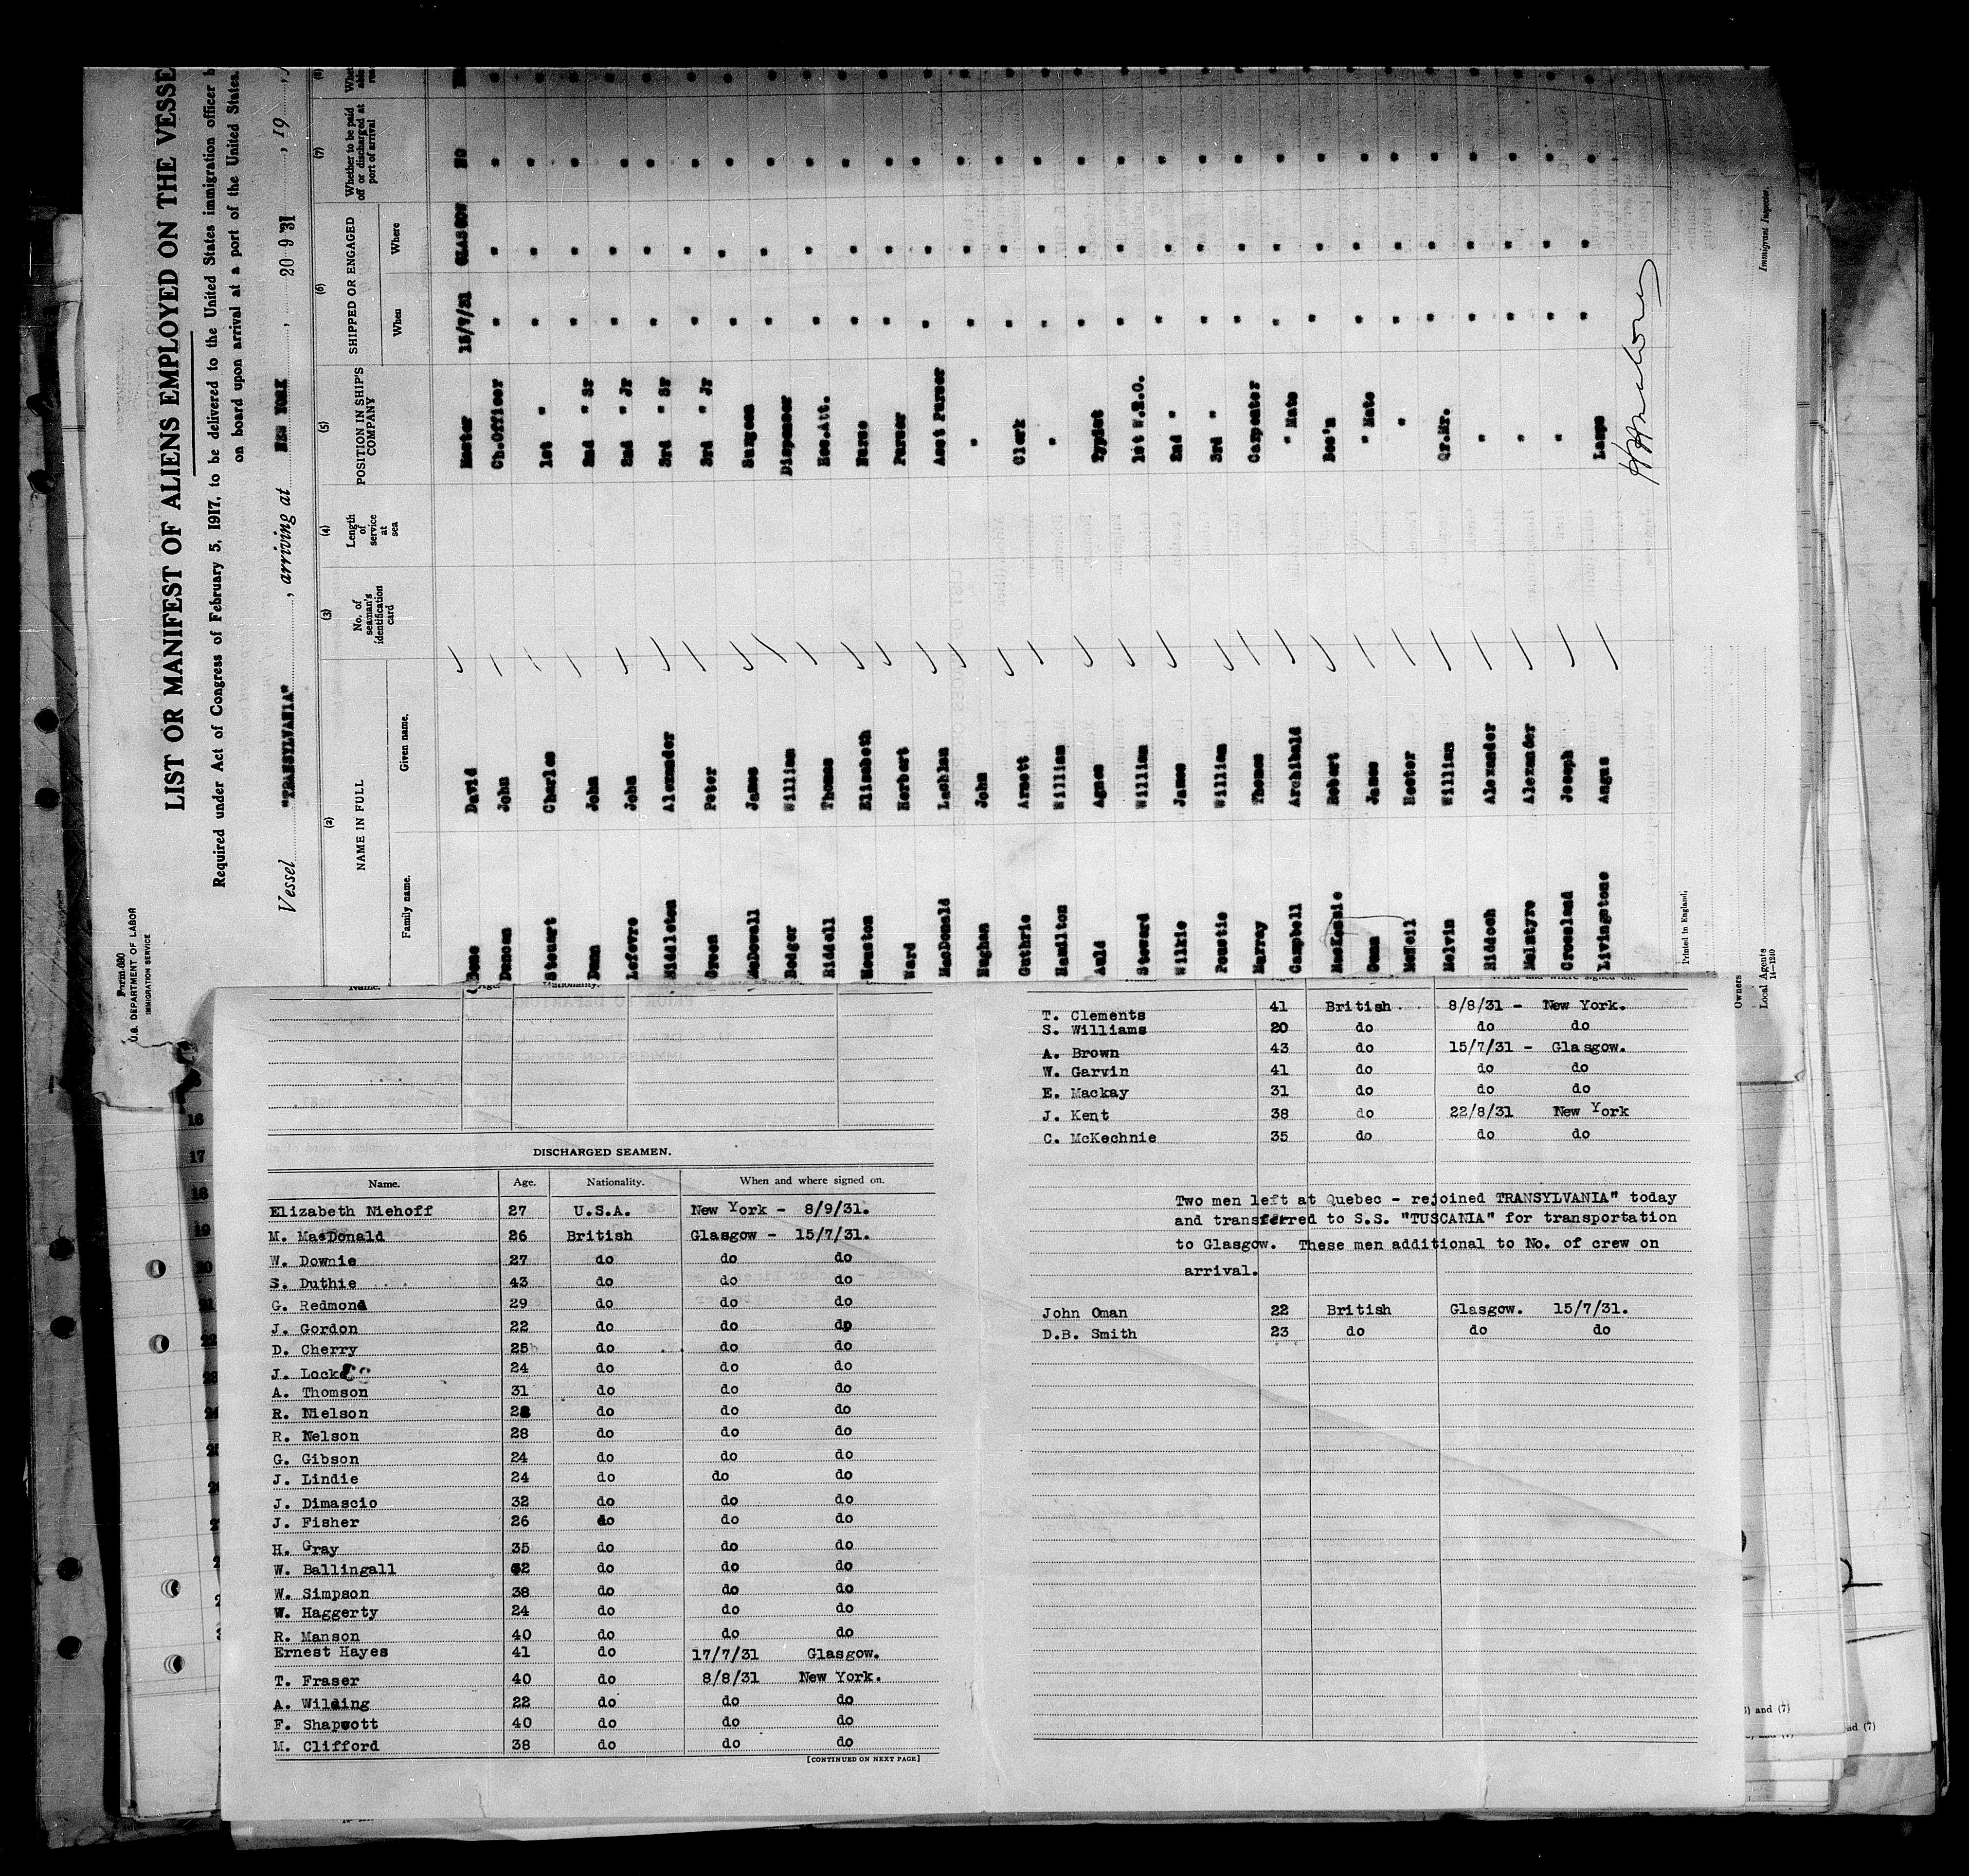 Form 680
U.S. DEPARTMENT OF LABOR
IMMIGRATION SERVICE
LIST OR MANIFEST OF ALIENS EMPLOYED ON THE VESSE
Required under Act of Congress of February 5, 1917, to be delivered to the United States immigration officer b
on board upon arrival at a port of the United States.
Vessel "TRANSYLVANIA", arriving at NEW YORK, 20 9 31, 19
(2) (3) (4) (5) (6) (7) (8)
NAME IN FULL
Family name. Given name.
No. of seaman's identification card
Length of service at sea
POSITION IN SHIP'S COMPANY
SHIPPED OR ENGAGED
When Where
Whether to be paid off or discharged at port of arrival
Bone David Master 15/7/31 GLASGOW NO
Duncan John Ch.Officer " " "
Steuart Charles 1st " " " "
Dunn John 2nd " Sr " " "
Lefevre John 2nd " Jr " " "
Middleton Alexander 3rd " Sr " " "
Green Peter 3rd " Jr " " "
McDowell James Surgeon " " "
Dodger William Dispenser " " "
Riddell Thomas Hos.Att. " " "
Houston Elizabeth Nurse " " "
Ward Herbert Purser " " "
MacDonald Lachlan Asst Purser " " "
Hughes John " " " "
Guthrie Arnott Clerk " " "
Hamilton William " " " "
Auld Agnes Typist " " "
Steward William 1st W.R.O. " " "
Wilkie James 2nd " " " "
Poustie William 3rd " " " "
Murray Thomas Carpenter " " "
Campbell Archibald " Mate " " "
MacKenzie Robert Bos'n " " "
Gunn James " Mate " " "
McNeil Hector " " " "
Melvin William Qr.Mr. " " "
Riddoch Alexander " " " "
McIntyre Alexander " " " "
Crossland Joseph " " " "
Livingstone Angus Lamps " " "
Printed in England.
Owners
Local Agents
14—1240
Immigrant Inspector.
16
17
18
19
20
21
DISCHARGED SEAMEN.
Name. Age. Nationality. When and where signed on.
Elizabeth Niehoff 27 U.S.A. New York - 8/9/31.
M. MacDonald 26 British Glasgow - 15/7/31.
W. Downie 27 do do do
S. Duthie 43 do do do
G. Redmond 29 do do do
J. Gordon 22 do do do
D. Cherry 25 do do do
J. Locke 24 do do do
A. Thomson 31 do do do
R. Nielson 28 do do do
R. Nelson 28 do do do
G. Gibson 24 do do do
J. Lindie 24 do do do
J. Dimascio 32 do do do
J. Fisher 26 do do do
H. Gray 35 do do do
W. Ballingall 32 do do do
W. Simpson 38 do do do
W. Haggerty 24 do do do
R. Manson 40 do do do
Ernest Hayes 41 do 17/7/31 Glasgow.
T. Fraser 40 do 8/8/31 New York.
A. Wilding 22 do do do
F. Shapcott 40 do do do
M. Clifford 38 do do do
[CONTINUED ON NEXT PAGE]
T. Clements 41 British 8/8/31 - New York.
S. Williams 20 do do do
A. Brown 43 do 15/7/31 - Glasgow.
W. Garvin 41 do do do
E. Mackay 31 do do do
J. Kent 38 do 22/8/31 New York
C. McKechnie 35 do do do
Two men left at Quebec - rejoined TRANSYLVANIA" today
and transferred to S.S. "TUSCANIA" for transportation
to Glasgow. These men additional to No. of crew on
arrival.
John Oman 22 British Glasgow. 15/7/31.
D.B. Smith 23 do do do
) and (7)
ad (7)